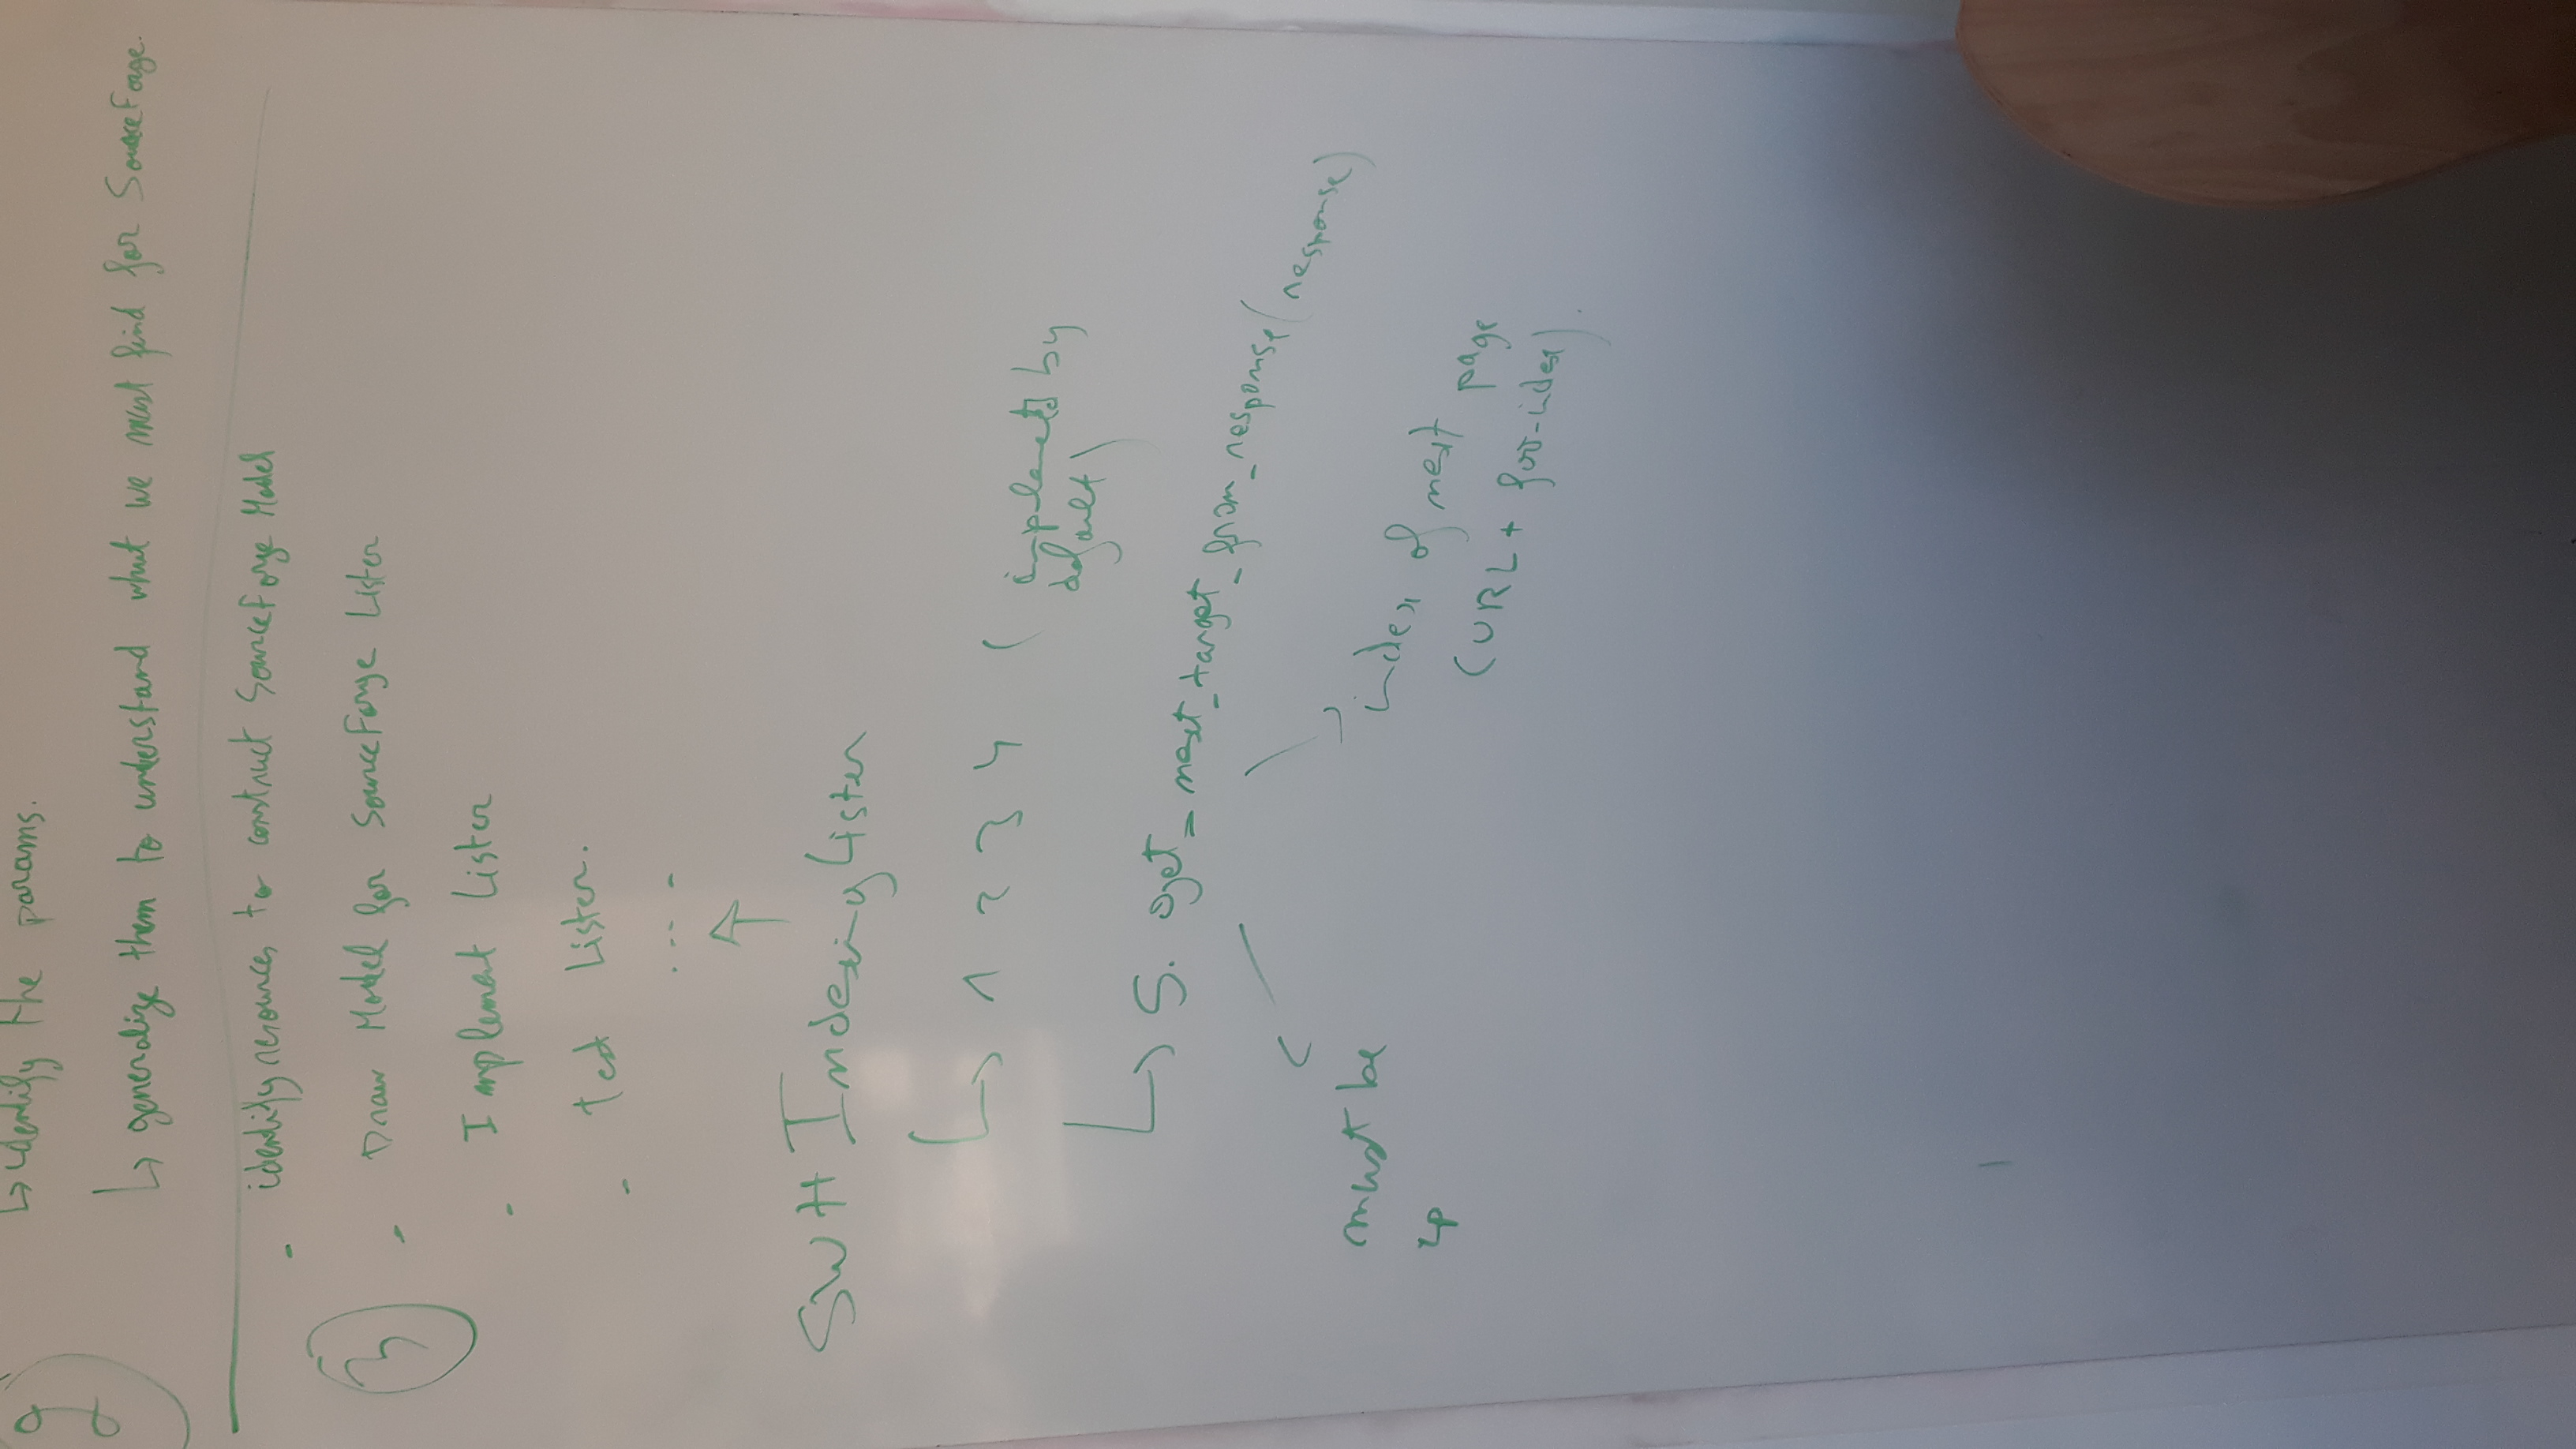 2
↳ identify the params.
↳ generalize them to understand what we must find for SourceForge.
- identify resources to construct SourceForge Model
3
- Draw Model for SourceForge Lister
- Implement Lister
- Test Lister.
....
↑
SWH Indexing Lister
↳ 1 2 3 4 (implements by
default)
↳ 5. get_next_target_from_response(response)
must be
index of next page
(URL + foo-index).